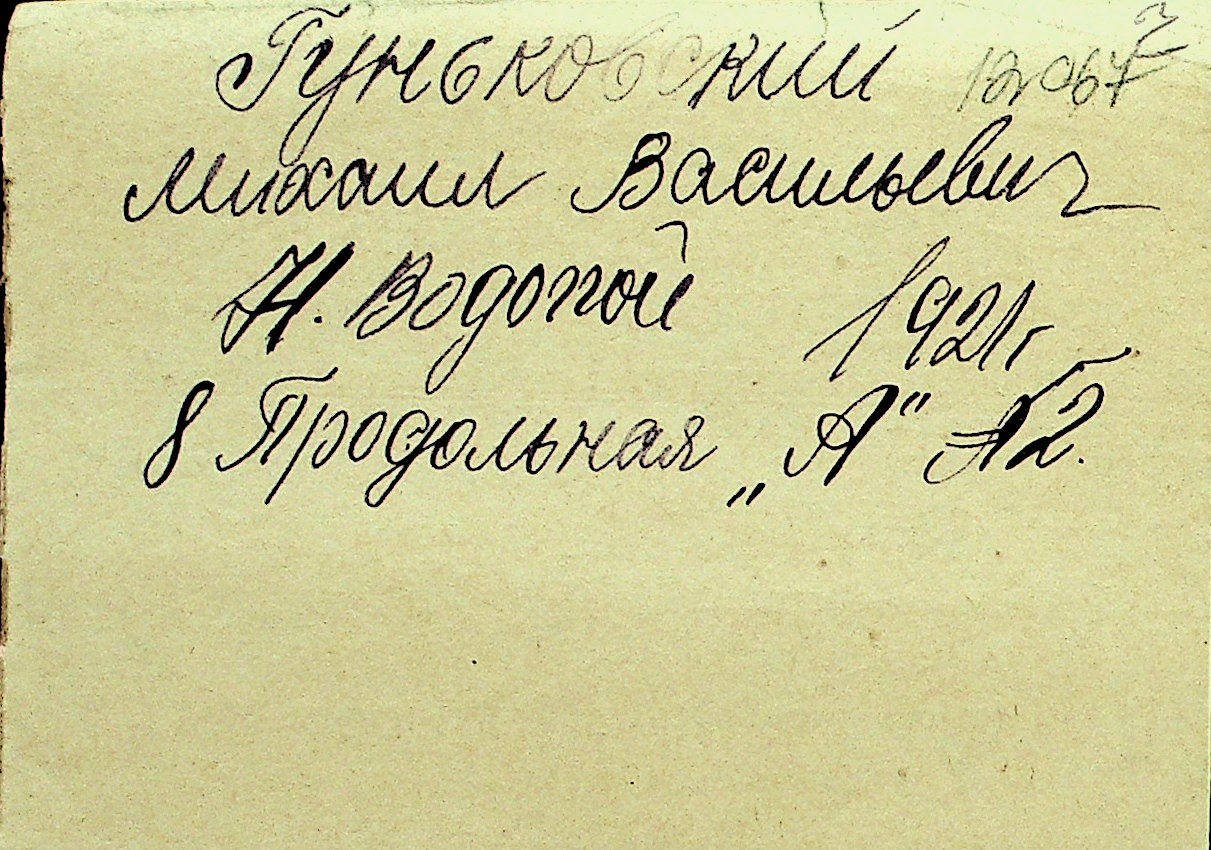 Гуньковский
Михаил Васильевич
Н. Водопой 1921г
8 Продольная „А“ 12.